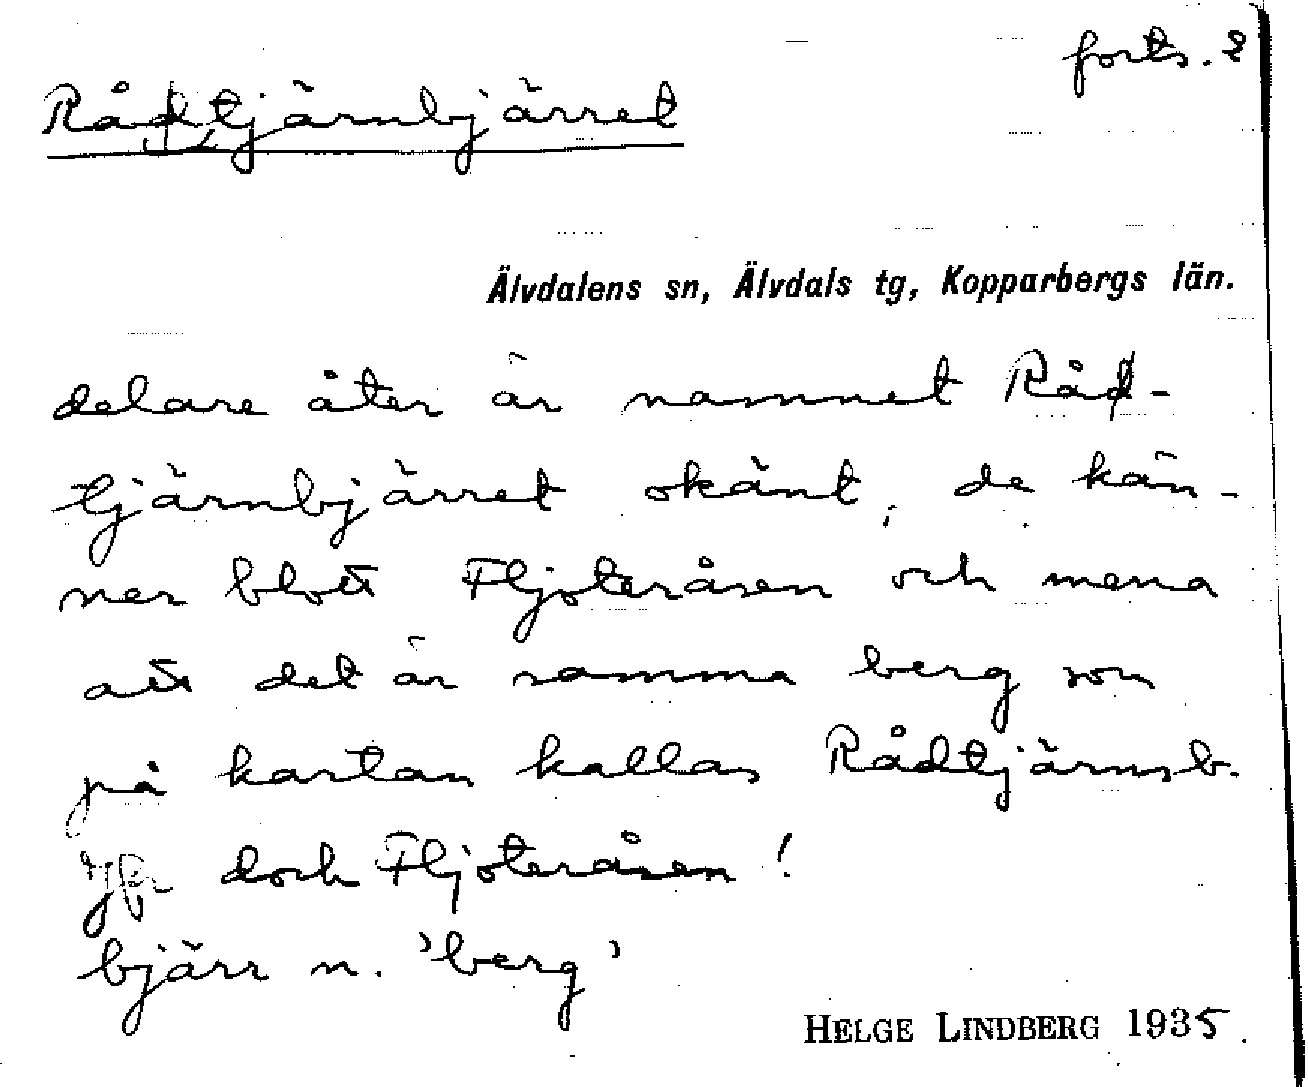 forts. 2
Rådtjärnbjärret
Älvdalens sn, Älvdals tg, Kopparbergs län.
delare åter är namnet Råd-
tjärnbjärret okänt, de kän-
ner blott Fljoteråsen och mena
att det är samma berg som
på kartan kallas Rådtjärnsb.
Jfr dock Fljoteråsen!
bjärr n. 'berg'
HELGE LINDBERG 1935.